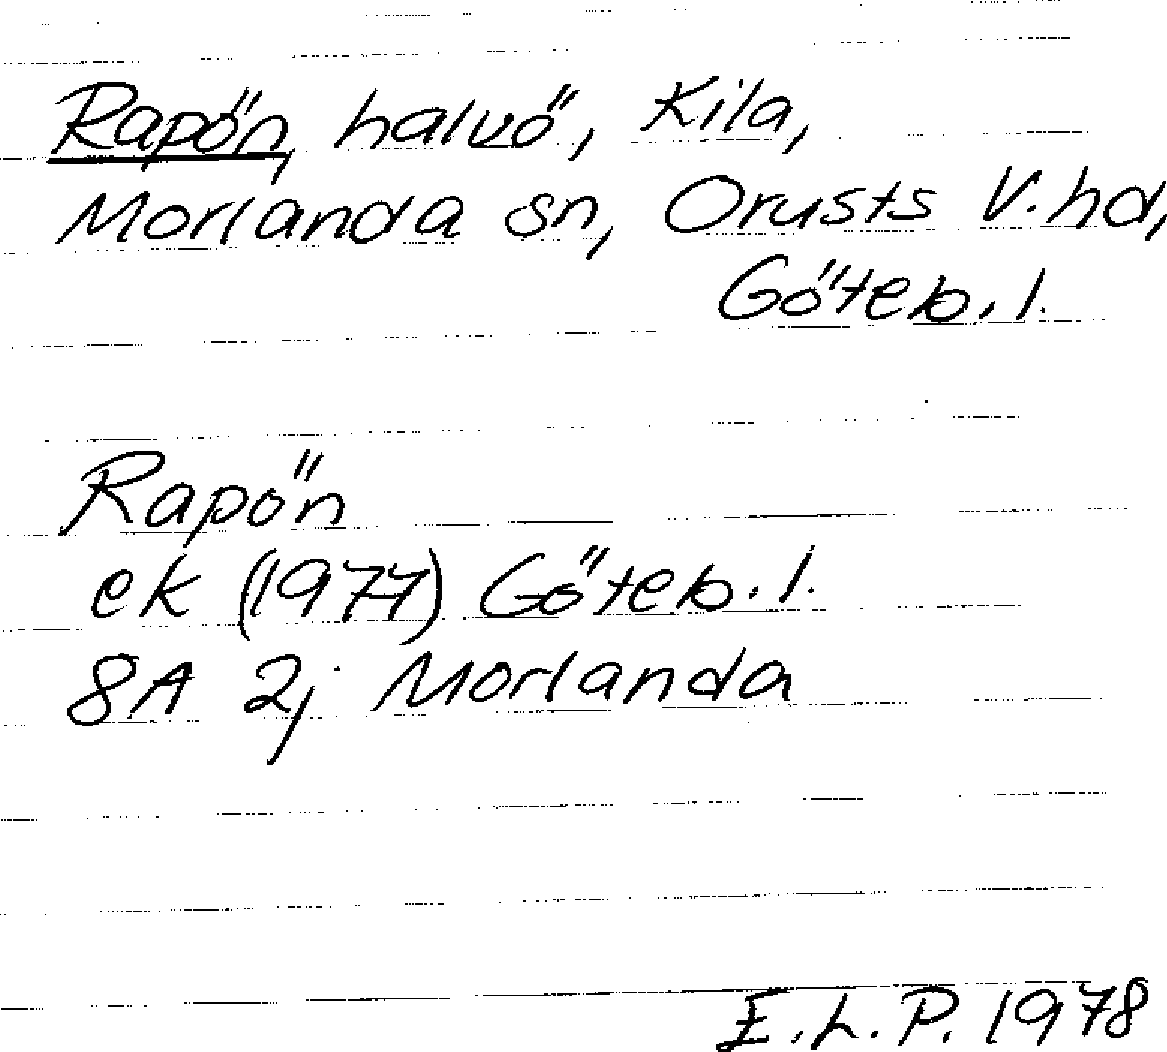 Rapön, halvö, Kila,
Morlanda sn, Orusts V. hd,
Göteb. l.
Rapön
ek (1977) Göteb. l.
8A 2j Morlanda
E.L.P. 1978